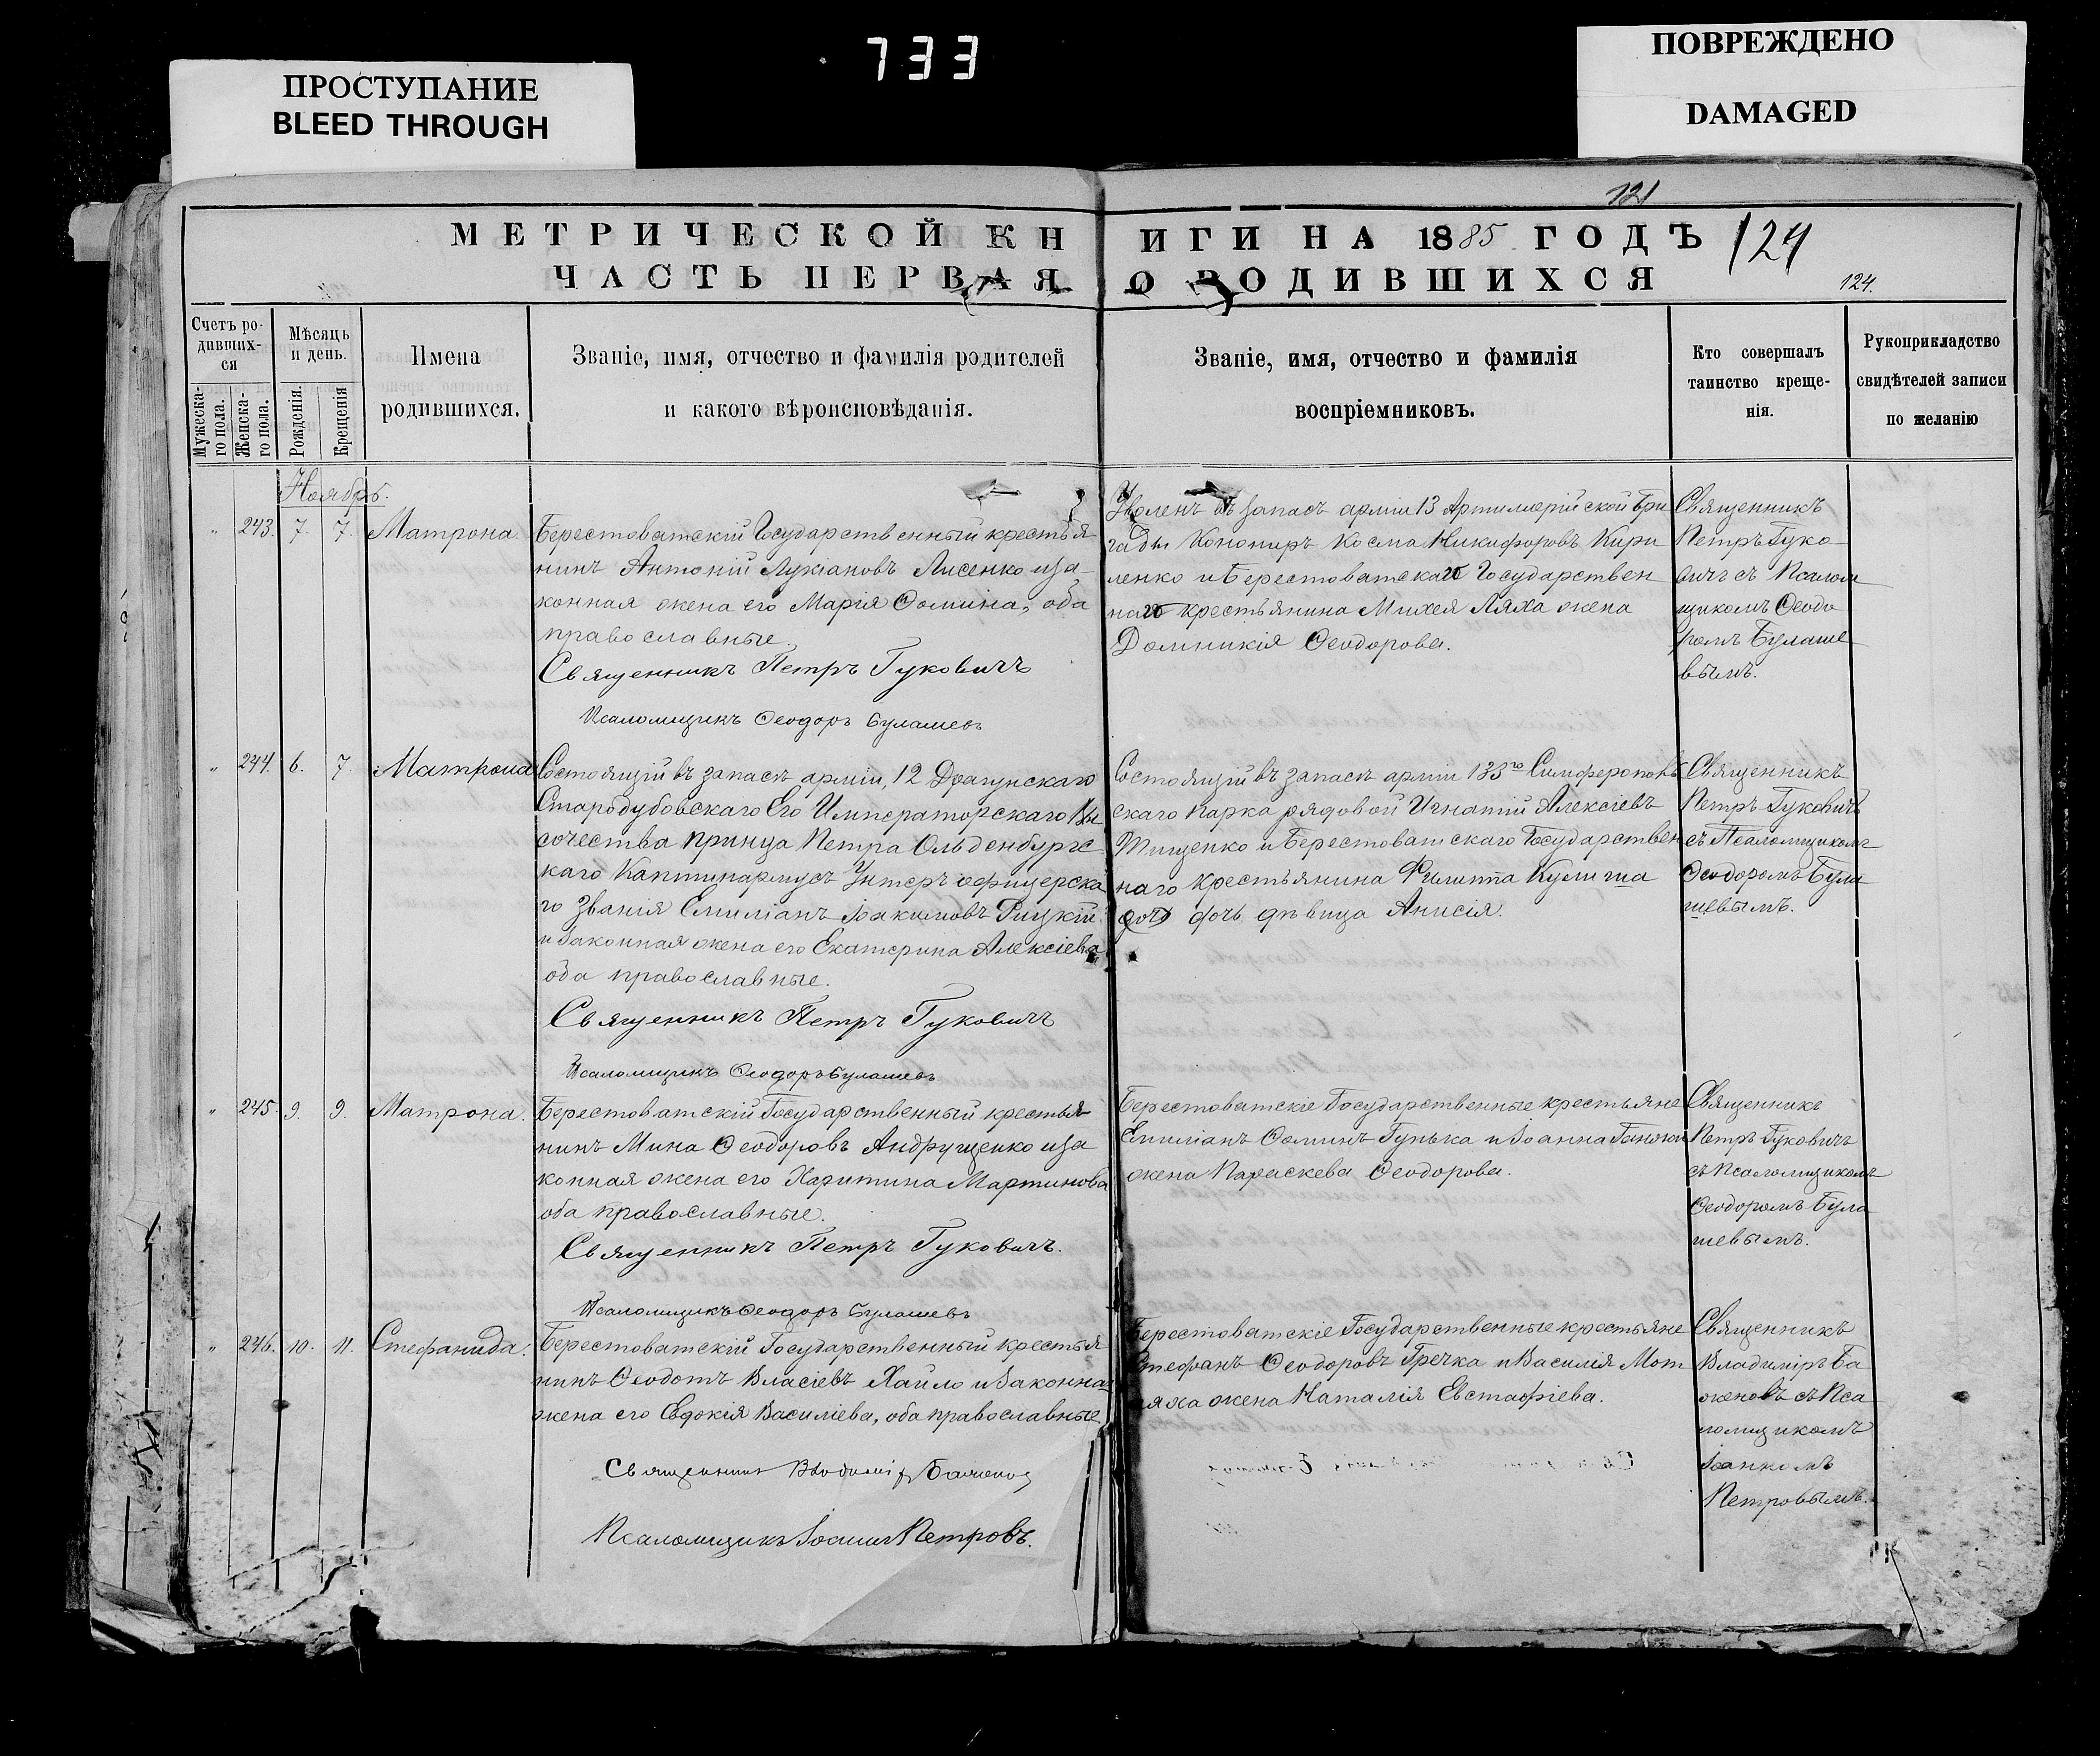 733
ПРОСТУПАНИЕ
BLEED THROUGH
ПОВРЕЖДЕНО
DAMAGED
121
МЕТРИЧЕСКОЙ КНИГИ НА 1885 ГОДЪ
124
ЧАСТЬ ПЕРВАЯ О РОДИВШИХСЯ
124.
Счетъ ро-
дивших-
ся
Мужеска-
го пола.
Женска-
го пола.
Мѣсяцъ
и день.
Рожденія.
Крещенія
Имена
родившихся.
Званіе, имя, отчество и фамилія родителей
и какого вѣроисповѣданія.
Званіе, имя, отчество и фамилія
воспріемниковъ.
Кто совершалъ
таинство креще-
нія.
Рукоприкладство
свидѣтелей записи
по желанію
Ноябрь.
" 243. 7. 7. Матрона.
Берестоватскій Государственный крестья
нинъ Антоній Лукіановъ Лисенко и за
конная жена его Марія Ѳомина, оба
православные.
Священникъ Петръ Гуковичъ
Псаломщикъ Ѳеодоръ Булашевъ
Уволенъ въ запасъ арміи 13 Артиллерійской бри
гады Канониръ Косма Никифоровъ Кири
ленко и Берестоватскаго Государствен
наго крестьянина Михея Ляха жена
Домникія Ѳеодорова.
Священникъ
Петръ Гуко
вичъ съ Псалом
щикомъ Ѳеодо
ромъ Булаше
вымъ.
" 244. 6. 7. Матрона
Состоящій въ запасѣ арміи, 12 Драгунскаго
Стародубовскаго Его Императорскаго Вы
сочества принца Петра Ольденбургс
каго Каптинармусъ Унтеръ офицерска
го званія Емиліанъ Іоакимовъ Рицкій
и законная жена его Екатерина Алексіева
оба православные.
Священникъ Петръ Гуковичъ
Псаломщикъ Ѳеодоръ Булашевъ
Состоящій въ запасѣ арміи 133го Симферополь
скаго парка рядовой Игнатій Алексіевъ
Тищенко и Берестоватскаго Государствен
наго крестьянина Филиппа Кулиша
дочь дѣвица Анисія.
Священникъ
Петръ Гуковичъ
съ Псаломщикомъ
Ѳеодоромъ Була
шевымъ.
" 245. 9. 9. Матрона.
Берестоватскій Государственный крестья
нинъ Мина Ѳеодоровъ Андрущенко и за
конная жена его Харитина Мартинова
оба православные.
Священникъ Петръ Гуковичъ.
Псаломщикъ Ѳеодоръ Булашевъ
Берестоватскіе Государственные крестьяне
Емиліанъ Ѳоминъ Гунька и Іоанна Ганжи
жена Параскева Ѳеодорова.
Священникъ
Петръ Гуковичъ
съ Псаломщикомъ
Ѳеодоромъ Була
шевымъ.
" 246. 10. 11. Стефанида.
Берестоватскій Государственный крестья
нинъ Ѳеодотъ Власіевъ Хайло и законная
жена его Евдокія Василіева, оба православные
Священникъ Владиміръ Баженовъ
Псаломщикъ Іоаннъ Петровъ.
Берестоватскіе Государственные крестьяне
Стефанъ Ѳеодоровъ Гречка и Василія Мот
ляха жена Наталія Евстафіева.
Священникъ
Владиміръ Ба
женовъ съ Пса
ломщикомъ
Іоанномъ
Петровымъ.